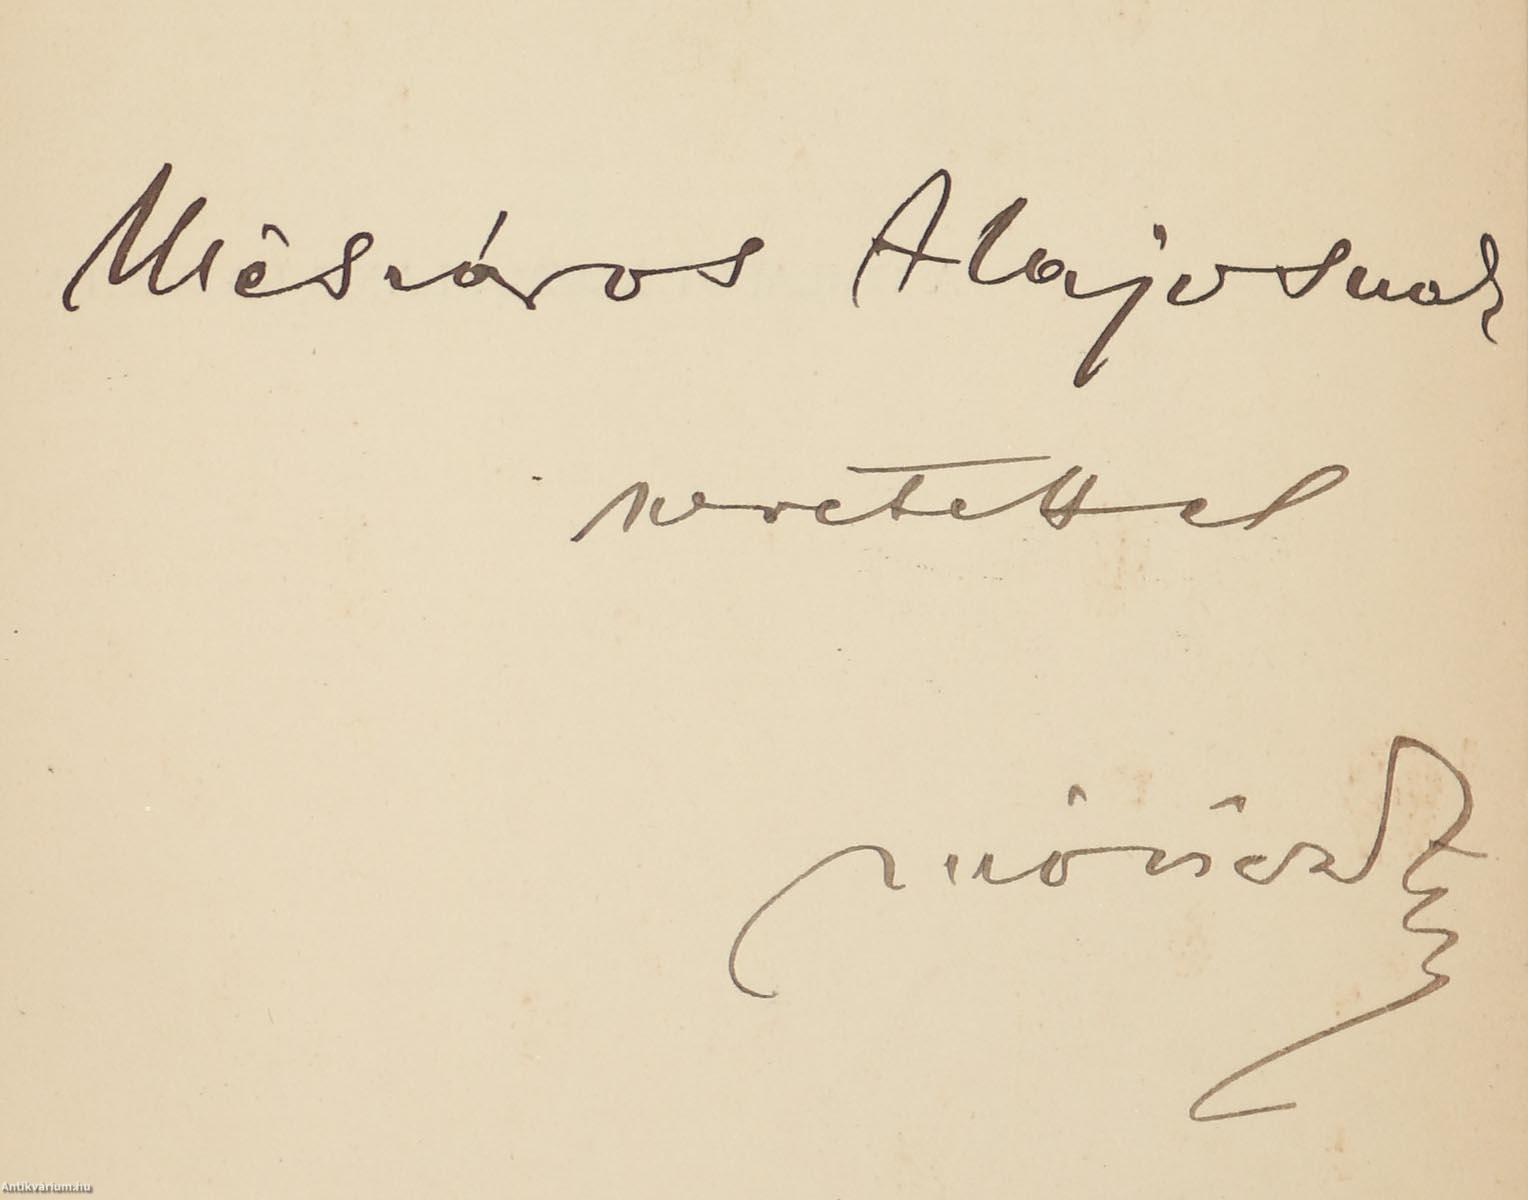 Mészáros Alajosnak
szeretettel
Móricz Zs
Antikvárium.hu